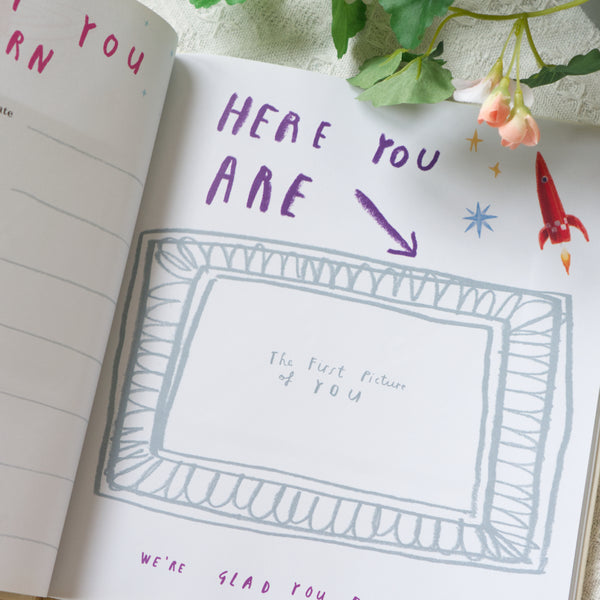 YOU
RN
HERE YOU
ARE
The First Picture
of YOU
WE'RE GLAD YOU